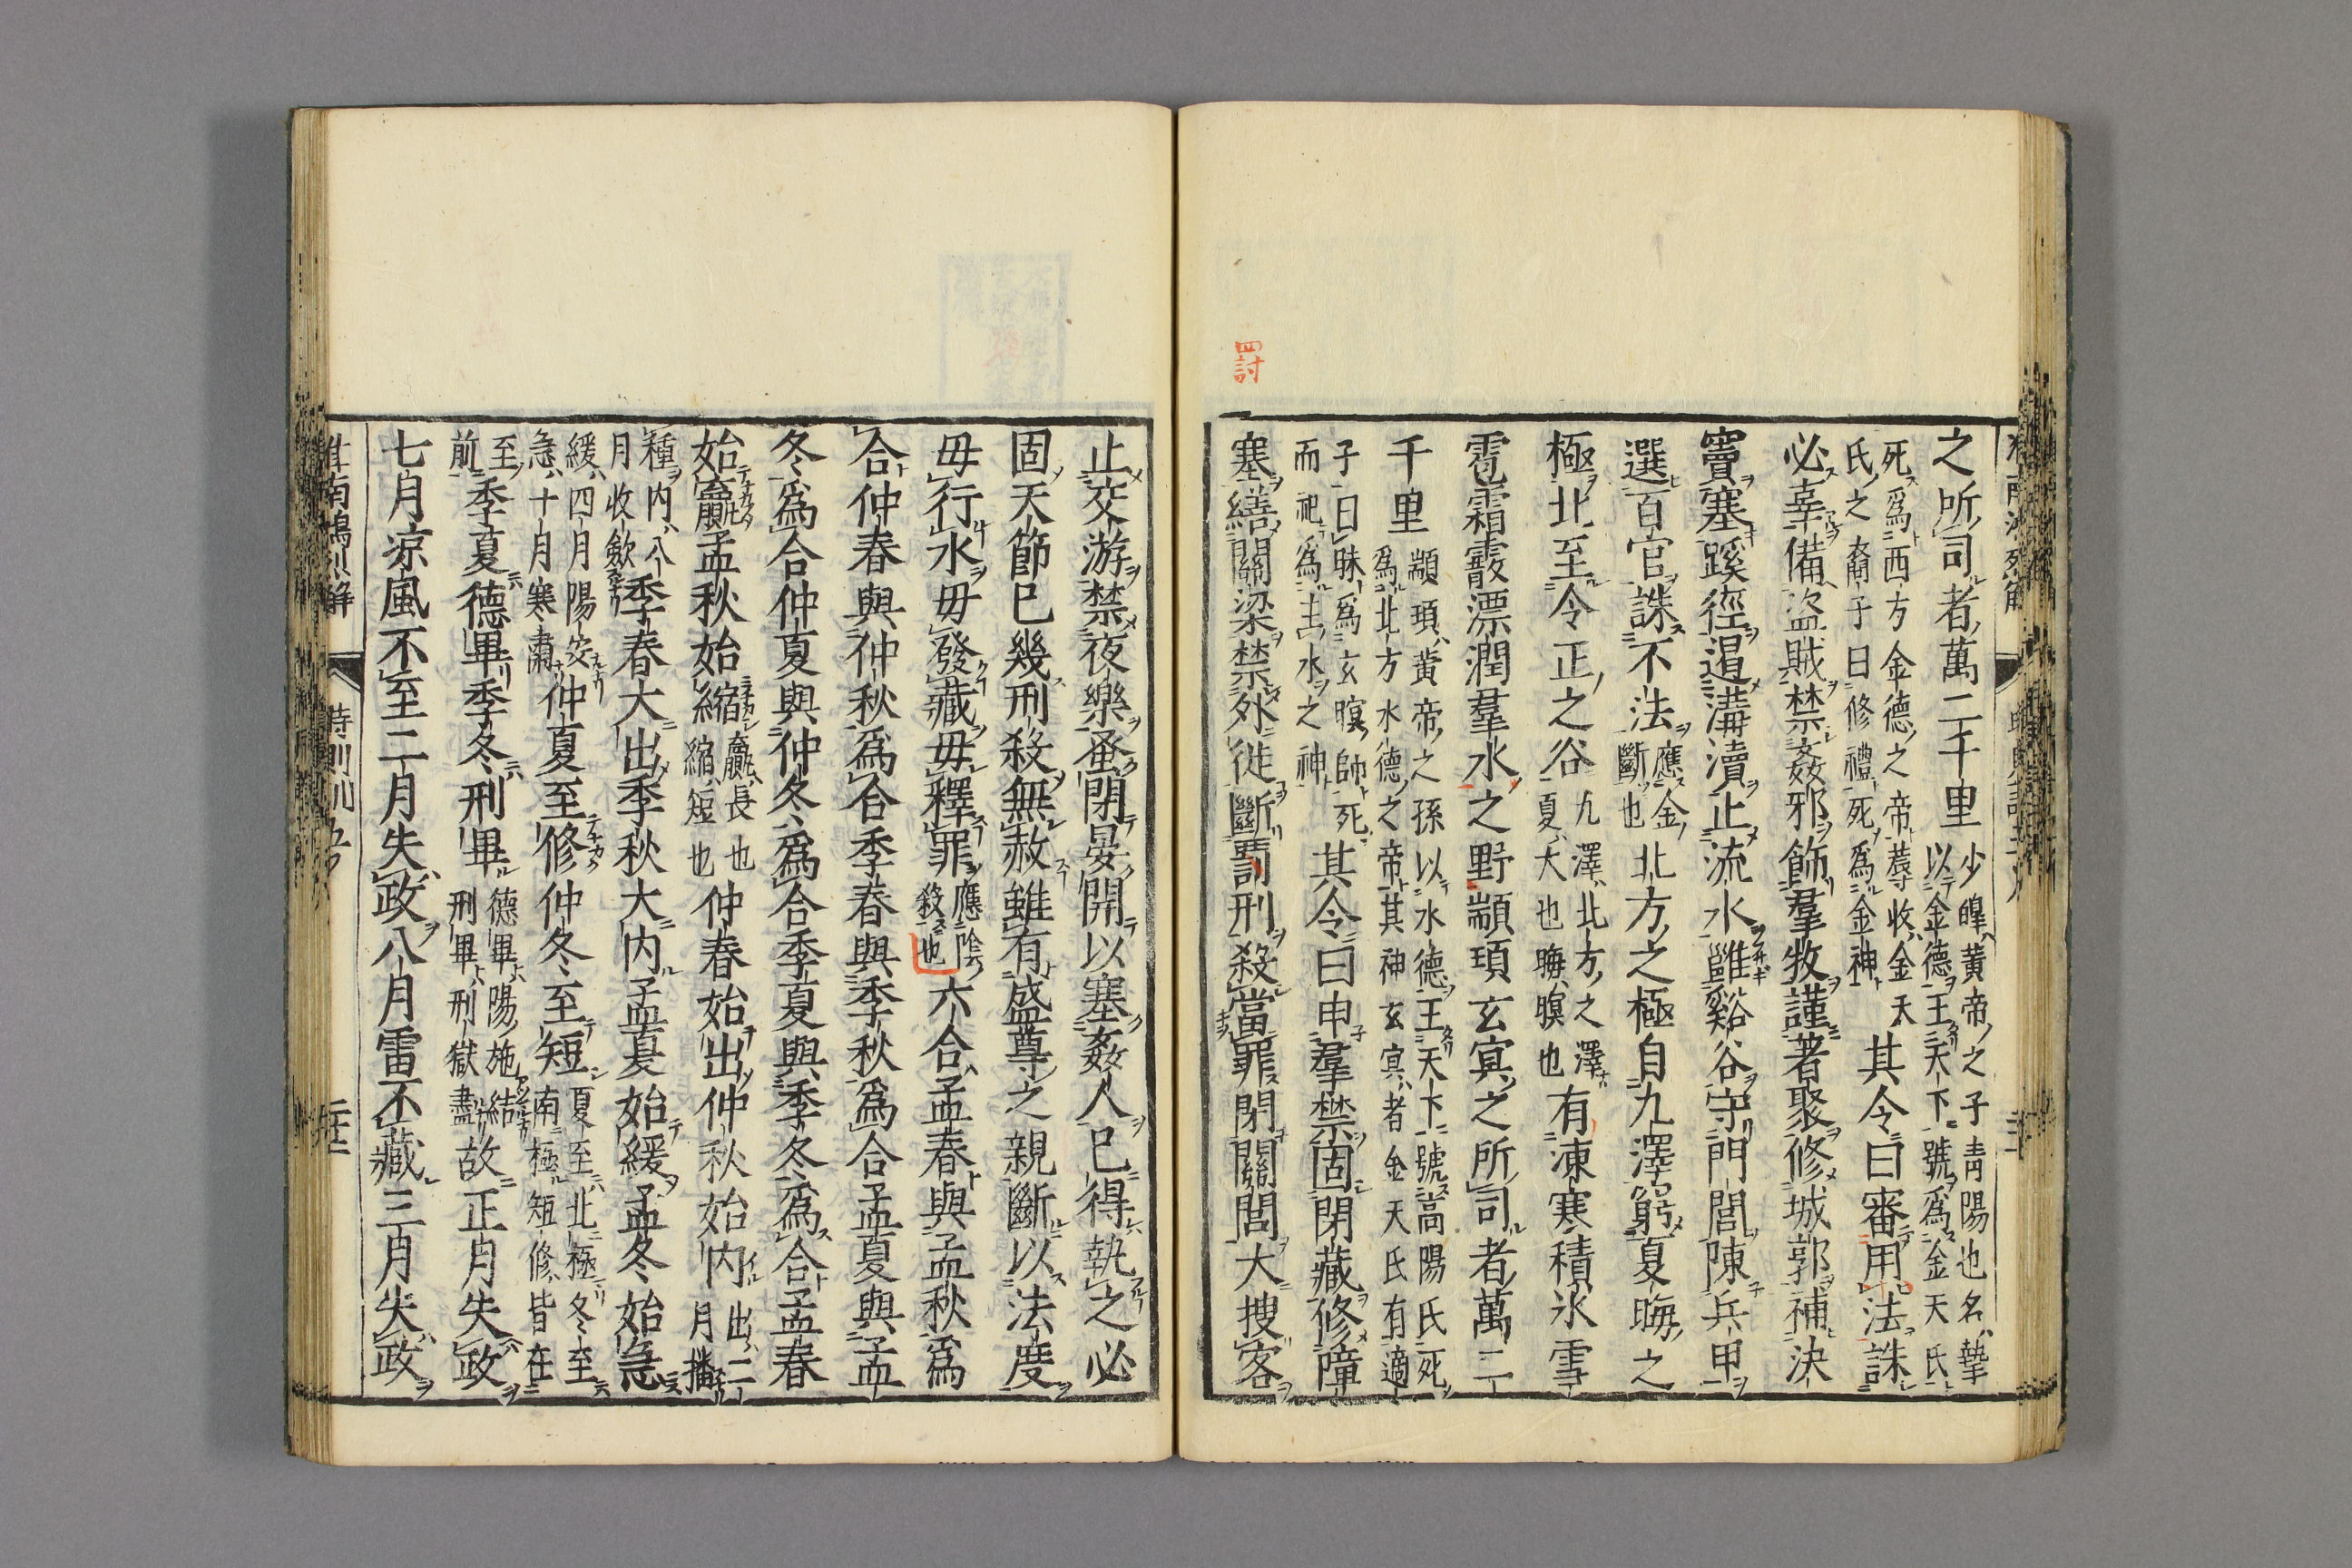 之所司者萬二千里 少皥黄帝之子青陽也名摯 以金德王天下號爲金天氏
死爲西方金德之帝蓐收金天 氏之裔子曰修禮死爲金神 其令曰審用法誅
必辜備盜賊禁姦邪飾羣牧謹著聚修城郭補決
竇塞蹊徑遏溝瀆止流水雝谿谷守門閭陳兵甲
選百官誅不法 應金 斷也 北方之極自九澤窮夏晦之
極北至令正之谷 九澤北方之澤 夏大也晦暝也 有凍寒積氷雪
雹霜霰漂潤羣水之野顓頊玄冥之所司者萬二
千里 顓頊黄帝之孫以水德王天下號高陽氏死 爲北方水德之帝其神玄冥者金天氏有適
子曰昧爲玄暝師死 而祀爲主水之神 其令曰申羣禁固閉藏修障
塞繕關梁禁外徙斷罰刑殺當罪閉關閭大搜客
四討
止交游禁夜樂蚤閉晏開以塞姦人已得執之必
固天節已幾刑殺無赦雖有盛尊之親斷以法度
毋行水毋發藏毋釋罪 應陰 殺也 六合孟春與孟秋爲
合仲春與仲秋爲合季春與季秋爲合孟夏與孟
冬爲合仲夏與仲冬爲合季夏與季冬爲合孟春
始贏孟秋始縮 贏長也 縮短也 仲春始出仲秋始内 出二 月播
種内八 月收斂 季春大出季秋大内孟夏始緩孟冬始急
緩四月陽安 急十月寒肅 仲夏至修仲冬至短 夏至北極冬至 南極短修皆在
至 前 季夏德畢季冬刑畢 德畢陽施結 刑畢刑獄盡 故正月失政
七月凉風不至二月失政八月雷不藏三月失政
淮南鴻烈解 時則訓五